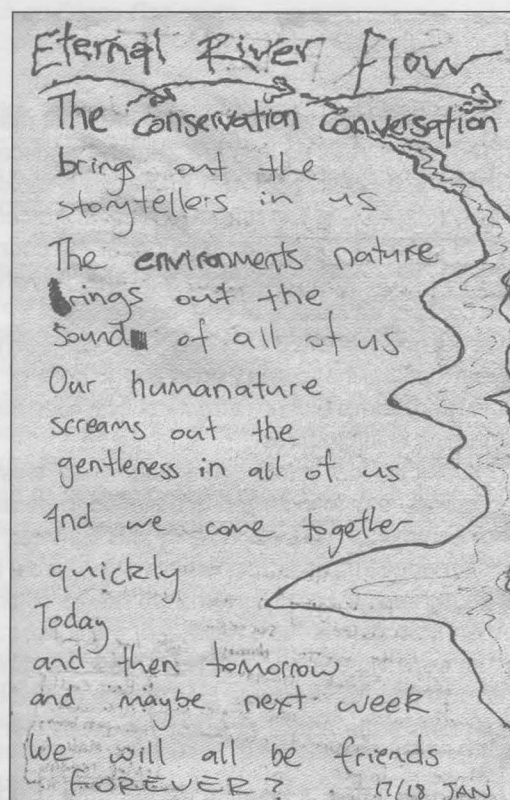 Eternal River Flow
The conservation conversation
brings out the
storytellers in us
The environments nature
rings out the
sound of all of us
Our humanature
screams out the
gentleness in all of us
And we come together
quickly
Today
and then tomorrow
and maybe next week
We will all be friends
FOREVER?
17/18 JAN